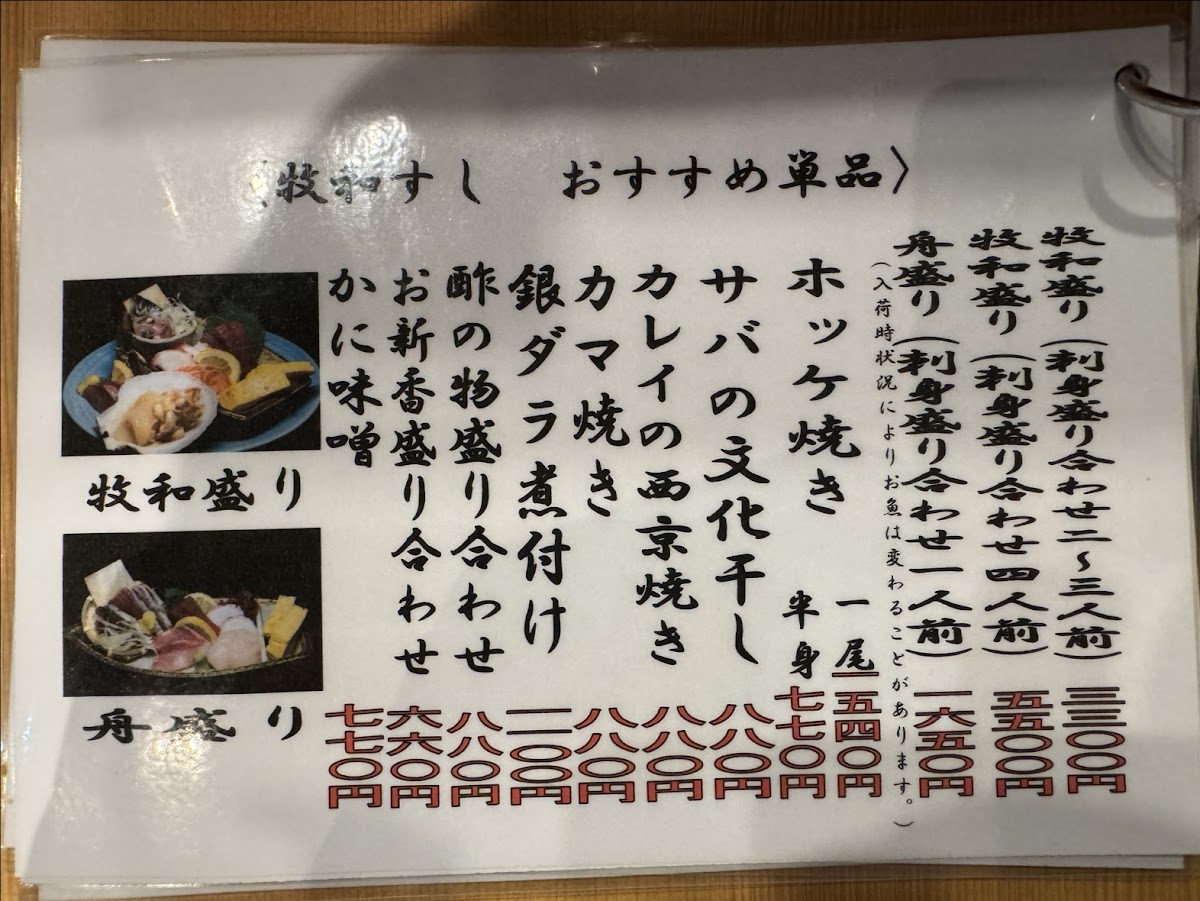 〈牧和すし　おすすめ単品〉
牧和盛り（刺身盛り合わせ二～三人前）三三〇〇円
牧和盛り（刺身盛り合わせ四人前）五五〇〇円
舟盛り（刺身盛り合わせ一人前）一六五〇円
（入荷時状況によりお魚は変わることがあります。）
ホッケ焼き　一尾　一五四〇円
半身　七七〇円
サバの文化干し　八八〇円
カレイの西京焼き　八八〇円
カマ焼き　八八〇円
銀ダラ煮付け　一一〇〇円
酢の物盛り合わせ　八八〇円
お新香盛り合わせ　六六〇円
かに味噌　七七〇円
牧和盛り
舟盛り